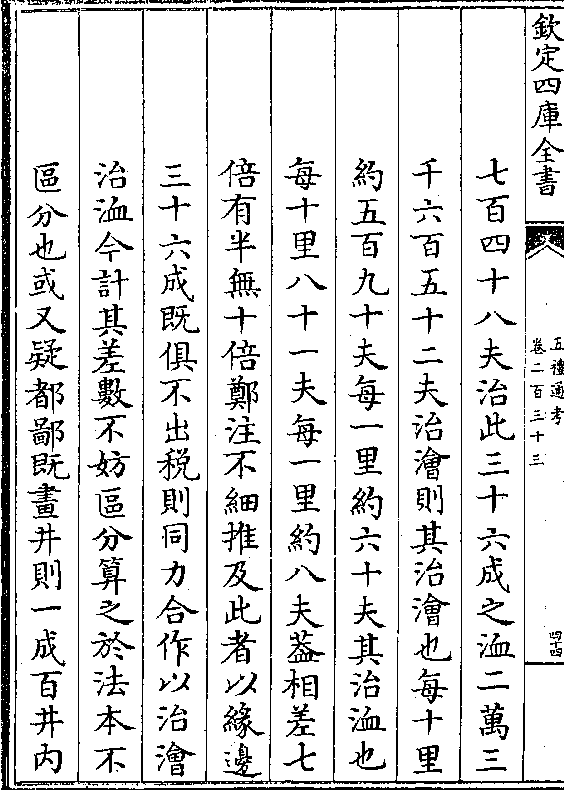 欽定四庫全書
五禮通考
卷二百三十三
四十四
七百四十八夫治此三十六成之洫二萬三
千六百五十二夫治澮則其治澮也每十里
約五百九十夫每一里約六十夫其治洫也
每十里八十一夫每一里約八夫葢相差七
倍有半無十倍鄭注不細推及此者以緣邊
三十六成既俱不出税則同力合作以治澮
治洫今計其差數不妨區分算之於法本不
區分也或又疑都鄙既畫井則一成百井内